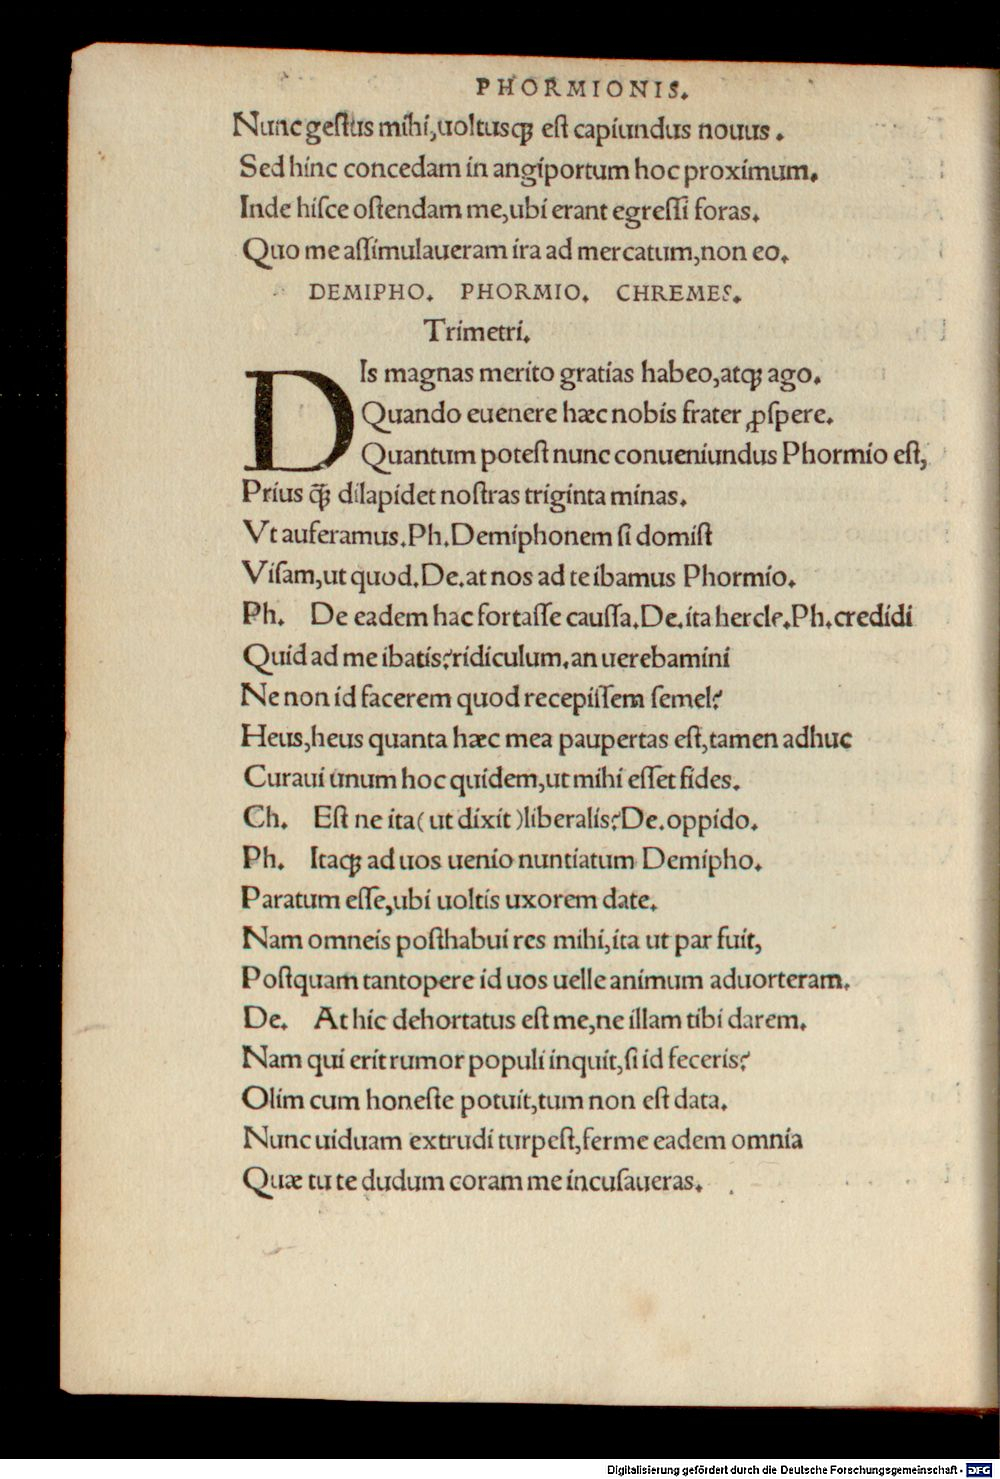 PHORMIONIS.
Nunc geſtus mihi,uoltusqꝫ eſt capiundus nouus .
Sed hinc concedam in angiportum hoc proximum.
Inde hiſce oſtendam me,ubi erant egreſſi foras.
Quo me aſſimulaueram ira ad mercatum,non eo.
DEMIPHO. PHORMIO. CHREMES.
Trimetri.
DIs magnas merito gratias habeo,atqꝫ ago.
Quando euenere hæc nobis frater ꝓſpere.
Quantum poteſt nunc conueniundus Phormio eſt,
Prius q̃ꝫ dilapidet noſtras triginta minas.
Vt auferamus.Ph.Demiphonem ſi domiſt
Viſam,ut quod.De.at nos ad te ibamus Phormio.
Ph. De eadem hac fortaſſe cauſſa.De.ita hercle.Ph.credidi
Quid ad me ibatis?ridiculum.an uerebamini
Ne non id facerem quod recepiſſem ſemel?
Heus,heus quanta hæc mea paupertas eſt,tamen adhuc
Curaui unum hoc quidem,ut mihi eſſet fides.
Ch. Eſt ne ita( ut dixit )liberalis?De.oppido.
Ph. Itaqꝫ ad uos uenio nuntiatum Demipho.
Paratum eſſe,ubi uoltis uxorem date.
Nam omneis poſthabui res mihi,ita ut par fuit,
Poſtquam tantopere id uos uelle animum aduorteram.
De. At hic dehortatus eſt me,ne illam tibi darem.
Nam qui erit rumor populi inquit,ſi id feceris?
Olim cum honeſte potuit,tum non eſt data.
Nunc uiduam extrudi turpeſt,ferme eadem omnia
Quæ tu te dudum coram me incuſaueras.
Digitalisierung gefördert durch die Deutsche Forschungsgemeinschaft - DFG